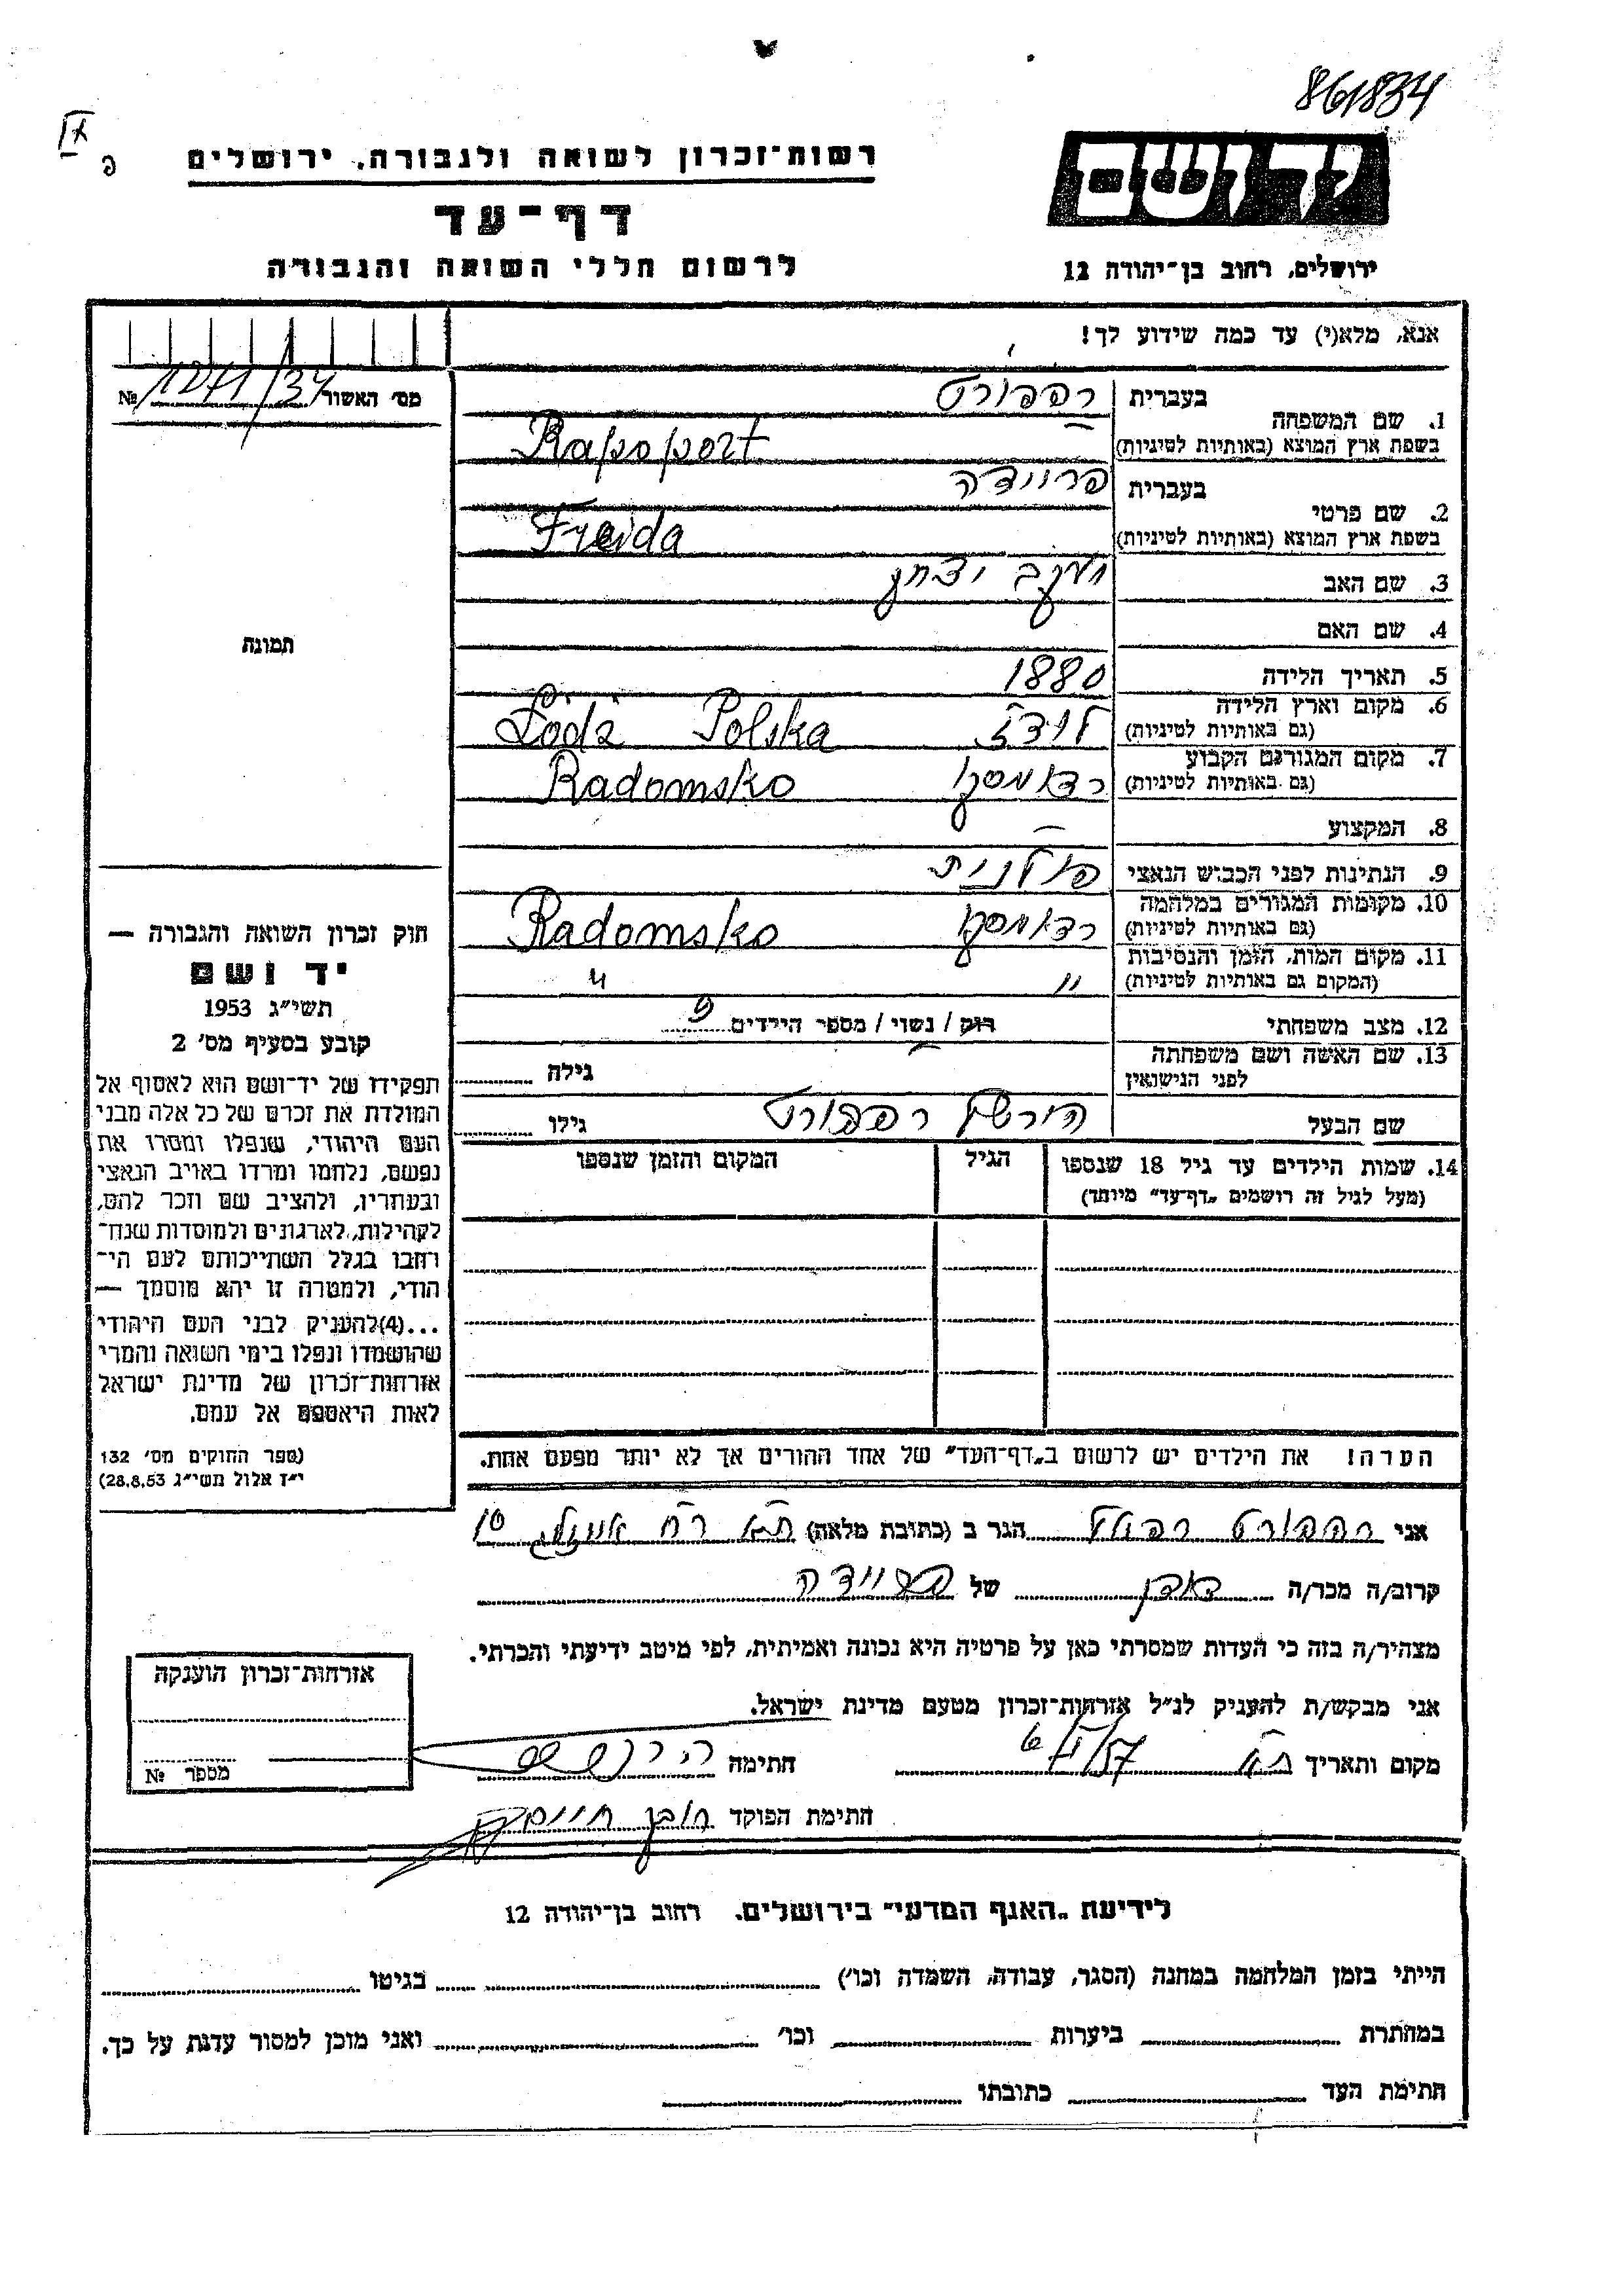 861834
IX
פ
יד ושם
רשות-זכרון לשואה ולגבורה, ירושלים
דף-עד
לרשום חללי השואה והגבורה
ירושלים, רחוב בן-יהודה 12
אנא, מלא(י) עד כמה שידוע לך!
מס' האשור 1271/34 №
תמונה
1. שם המשפחה
בעברית רפפורט
בשפת ארץ המוצא (באותיות לטיניות) Rapoport
2. שם פרטי
בעברית פריידה
בשפת ארץ המוצא (באותיות לטיניות) Freida
3. שם האב יעקב יצחק
4. שם האם
5. תאריך הלידה 1880
6. מקום וארץ הלידה לודז' Polska Łódź
(גם באותיות לטיניות)
7. מקום המגורים הקבוע רדומסקו Radomsko
(גם באותיות לטיניות)
8. המקצוע —
9. הנתינות לפני הכבוש הנאצי פולנית
10. מקומות המגורים במלחמה רדומסקו Radomsko
(גם באותיות לטיניות)
11. מקום המות, הזמן והנסיבות " "
(המקום גם באותיות לטיניות)
12. מצב משפחתי רוק / נשוי / מספר הילדים 9
13. שם האשה ושם משפחתה גילה
לפני הנישואין
שם הבעל הירשל רפפורט גילו
14. שמות הילדים עד גיל 18 שנספו הגיל המקום והזמן שנספו
(מעל לגיל זה רושמים „דף-עד" מיוחד)
הערה! את הילדים יש לרשום ב„דף-העד" של אחד ההורים אך לא יותר מפעם אחת.
חוק זכרון השואה והגבורה —
יד ושם
תשי"ג 1953
קובע בסעיף מס' 2
תפקידו של יד-ושם הוא לאסוף אל
המולדת את זכרם של כל אלה מבני
העם היהודי, שנפלו ומסרו את
נפשם, נלחמו ומרדו באויב הנאצי
ובעוזריו, ולהציב שם וזכר להם,
לקהילות, לארגונים ולמוסדות שנח-
רחבו בגלל השתייכותם לעם הי-
הודי, ולמטרה זו יהא מוסמך —
...(4)להעניק לבני העם היהודי
שהושמדו ונפלו בימי השואה והמרי
אזרחות-זכרון של מדינת ישראל
לאות היאספם אל עמם.
(ספר החוקים מס' 132
י"ז אלול תשי"ג 28.8.53)
אני רפפורט הגר ב (כתובת מלאה) ת"א רח' 10
קרוב/ה מכר/ה של פריידה
מצהיר/ה בזה כי העדות שמסרתי כאן על פרטיה היא נכונה ואמיתית, לפי מיטב ידיעתי והכרתי.
אני מבקש/ת להעניק לנ"ל אזרחות-זכרון מטעם מדינת ישראל.
מקום ותאריך ת"א חתימה
חתימת הפוקד
אזרחות-זכרון הוענקה
מספר №
לידיעת „האגף המדעי" בירושלים. רחוב בן-יהודה 12
הייתי בזמן המלחמה במחנה (הסגר, עבודה, השמדה וכו') בגיטו
במחתרת ביערות וכו' ואני מוכן למסור עדות על כך.
חתימת העד כתובתו